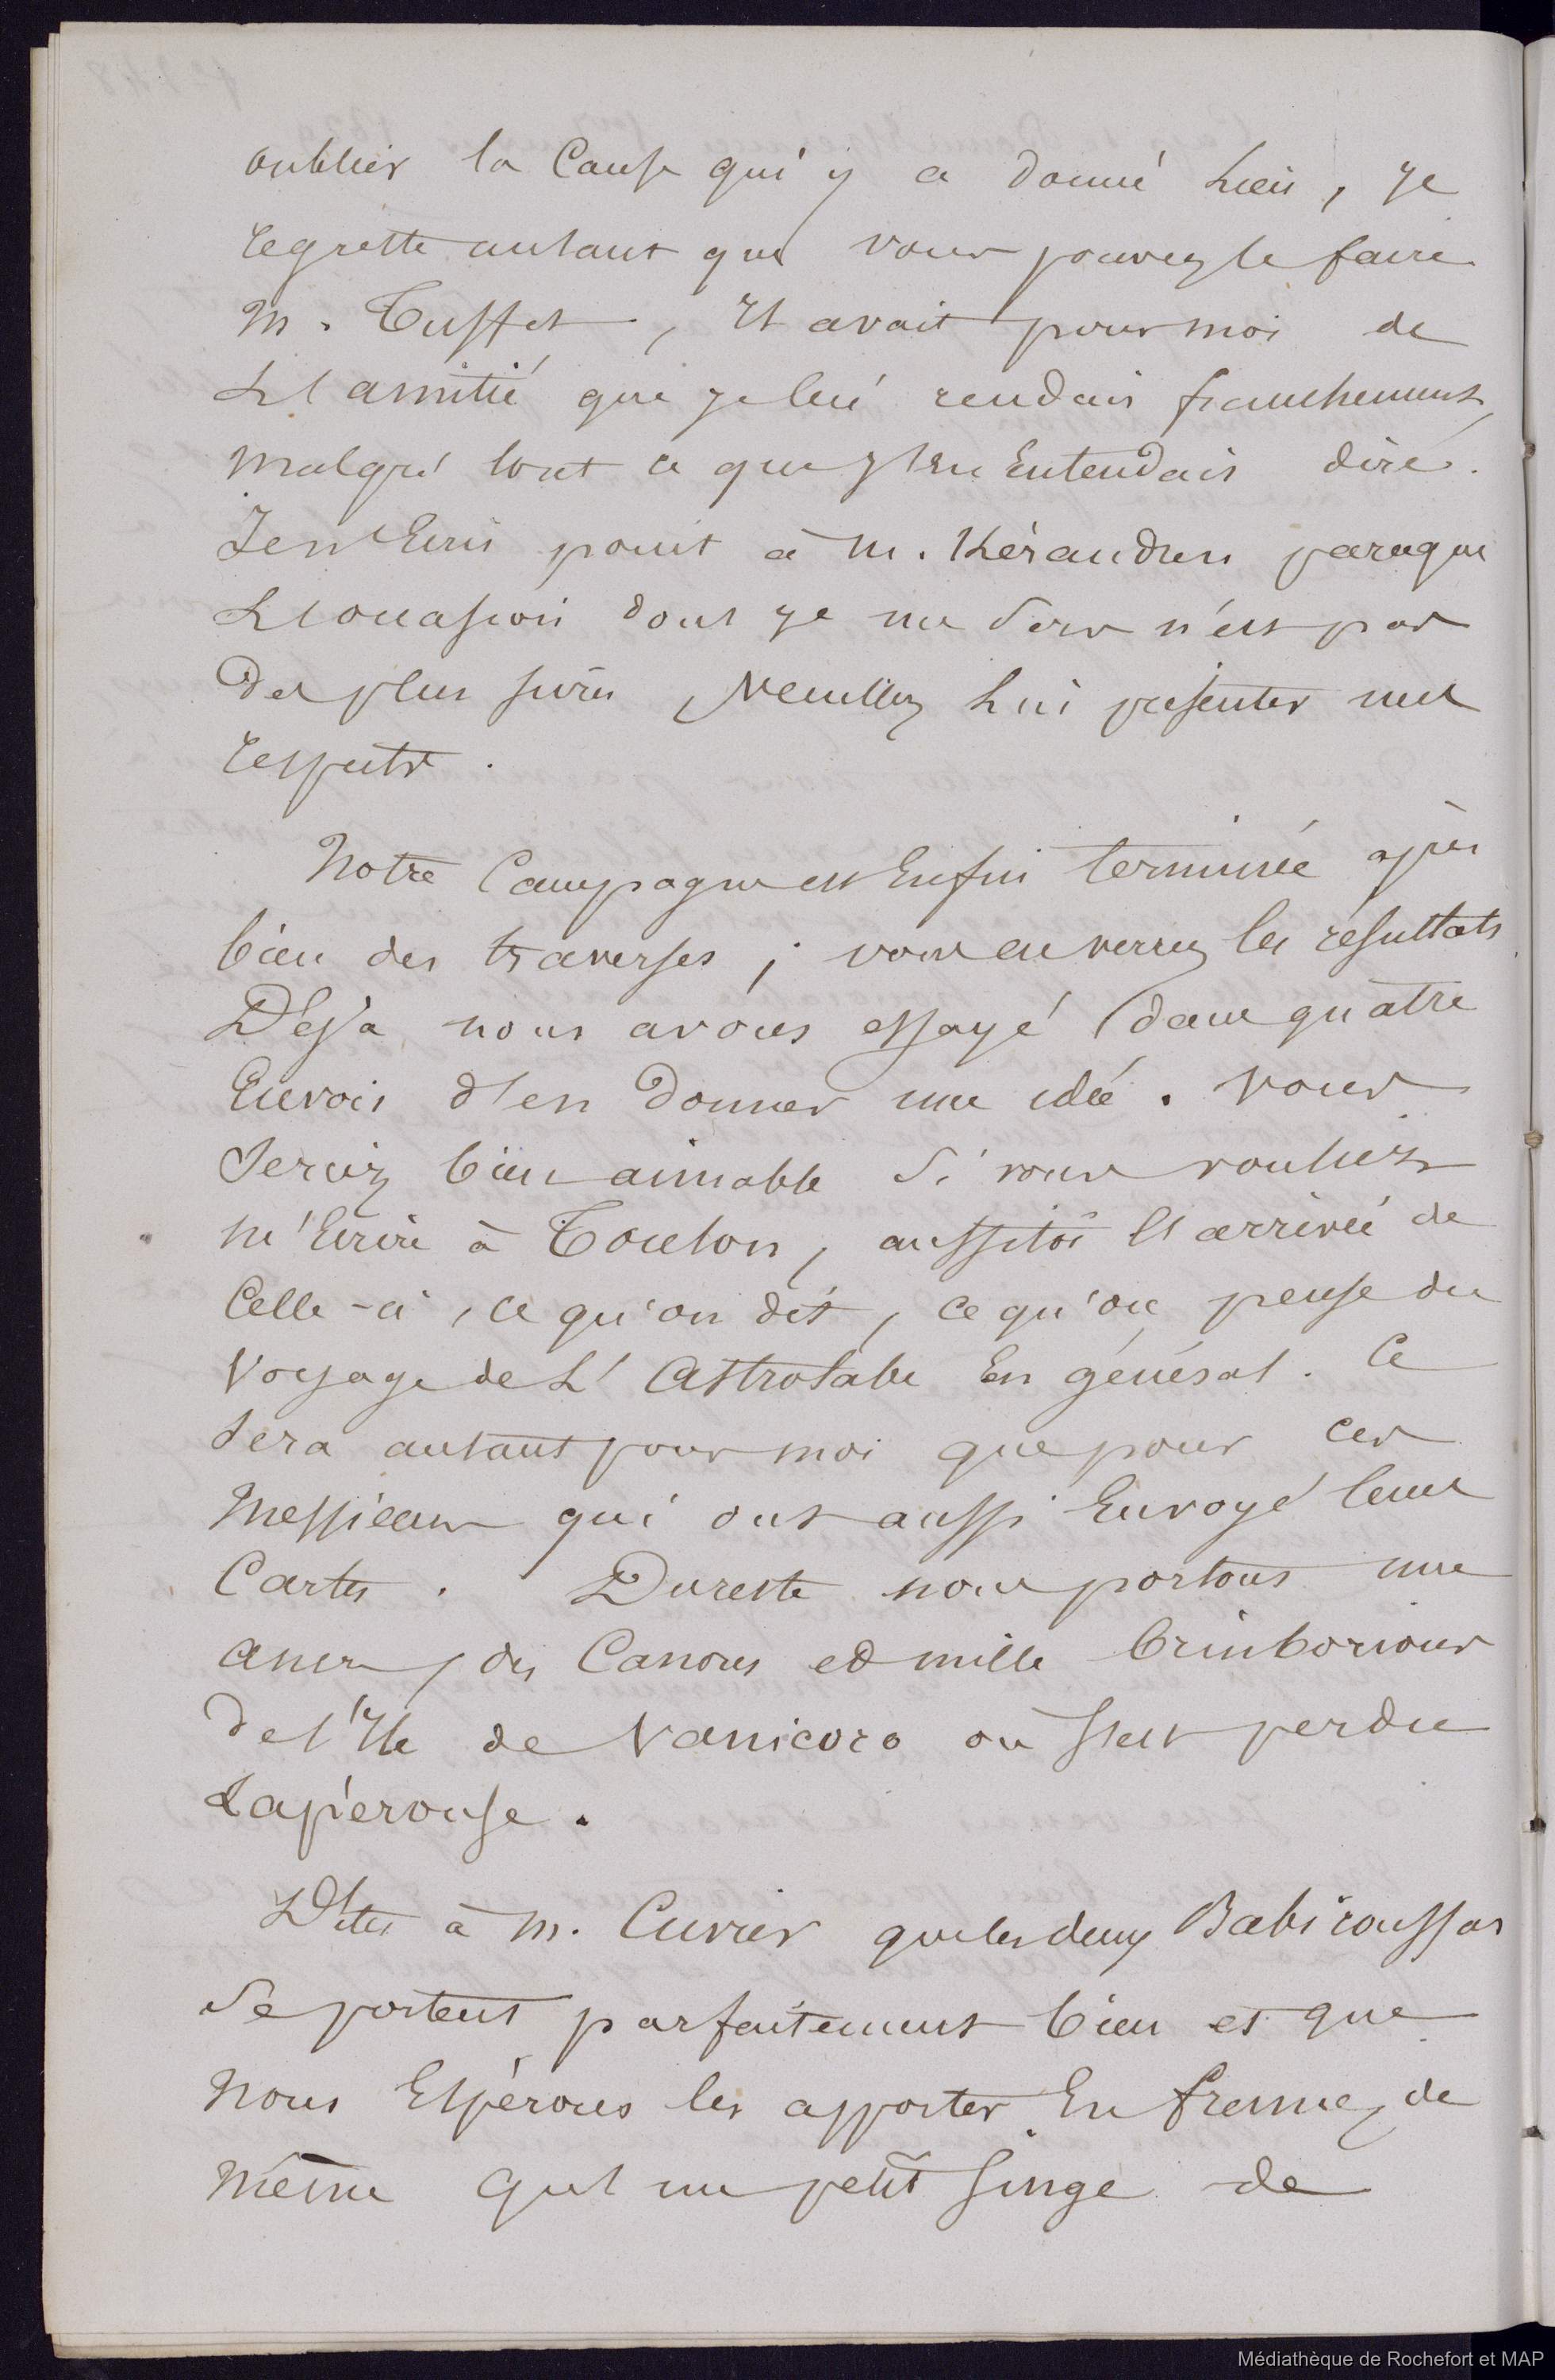 oublier la Cause qui y a donné Lieu, je
regrette autant que vous pouvez le faire
M. Tuffet, Il avait pour moi de
L'amitié que je lui rendais franchement,
malgré tout ce que j'en Entendais dire.
Je n'Ecris point à M. Kéraudren parceque
L'occasion dont je me sers n'est pas
des plus sures, Veuillez Lui présenter mes
respects.
Notre Campagne est Enfin terminée après
bien des traverses; vous en verrez les résultats
Déjà nous avons essayé dans quatre
Envois d'en Donner une idée. Vous
Seriez bien aimable Si vous vouliez
m'Ecrire à Toulon, aussitôt l'arrivée de
Celle-ci, ce qu'on dit, ce qu'on pense du
Voyage de L'Astrolabe En général. Ce
Sera autant pour moi que pour ces
Messieurs qui ont aussi Envoyé leurs
Cartes. Dureste nous portons une
ancre, des Canons et mille brimborions
de l'Ile de Vanicoro où s'est perdu
Lapérouse.
Dites à M. Cuvier que les deux Babiroussas
Se portent parfaitement bien et que
Nous Espérons les apporter En france, de
même qu'un petit Singe de
Médiathèque de Rochefort et MAP